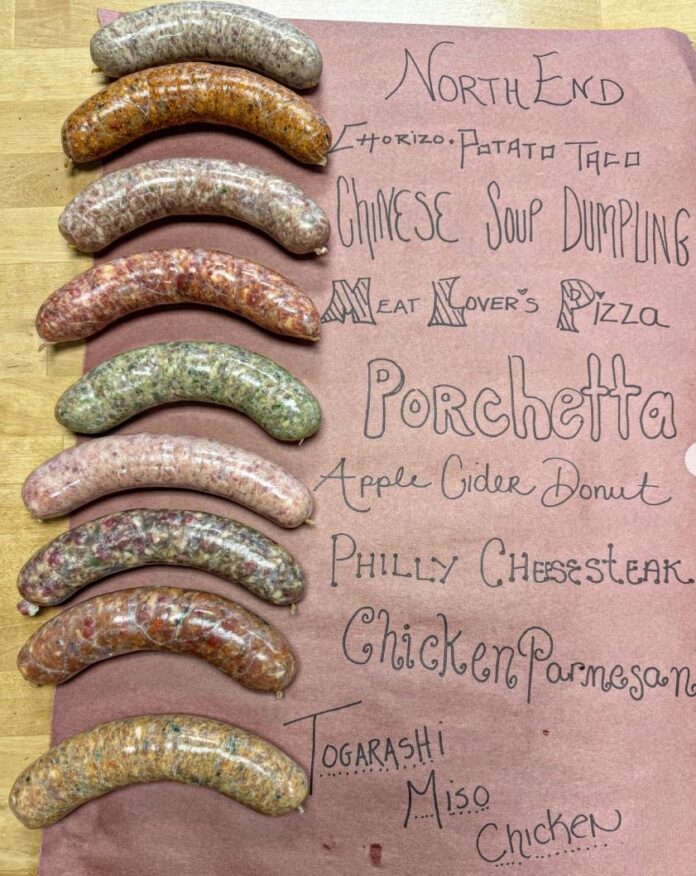 North End
Chorizo·Potato Taco
Chinese Soup Dumpling
Meat Lover's Pizza
Porchetta
Apple Cider Donut
Philly Cheesesteak
Chicken Parmesan
Togarashi
Miso
Chicken